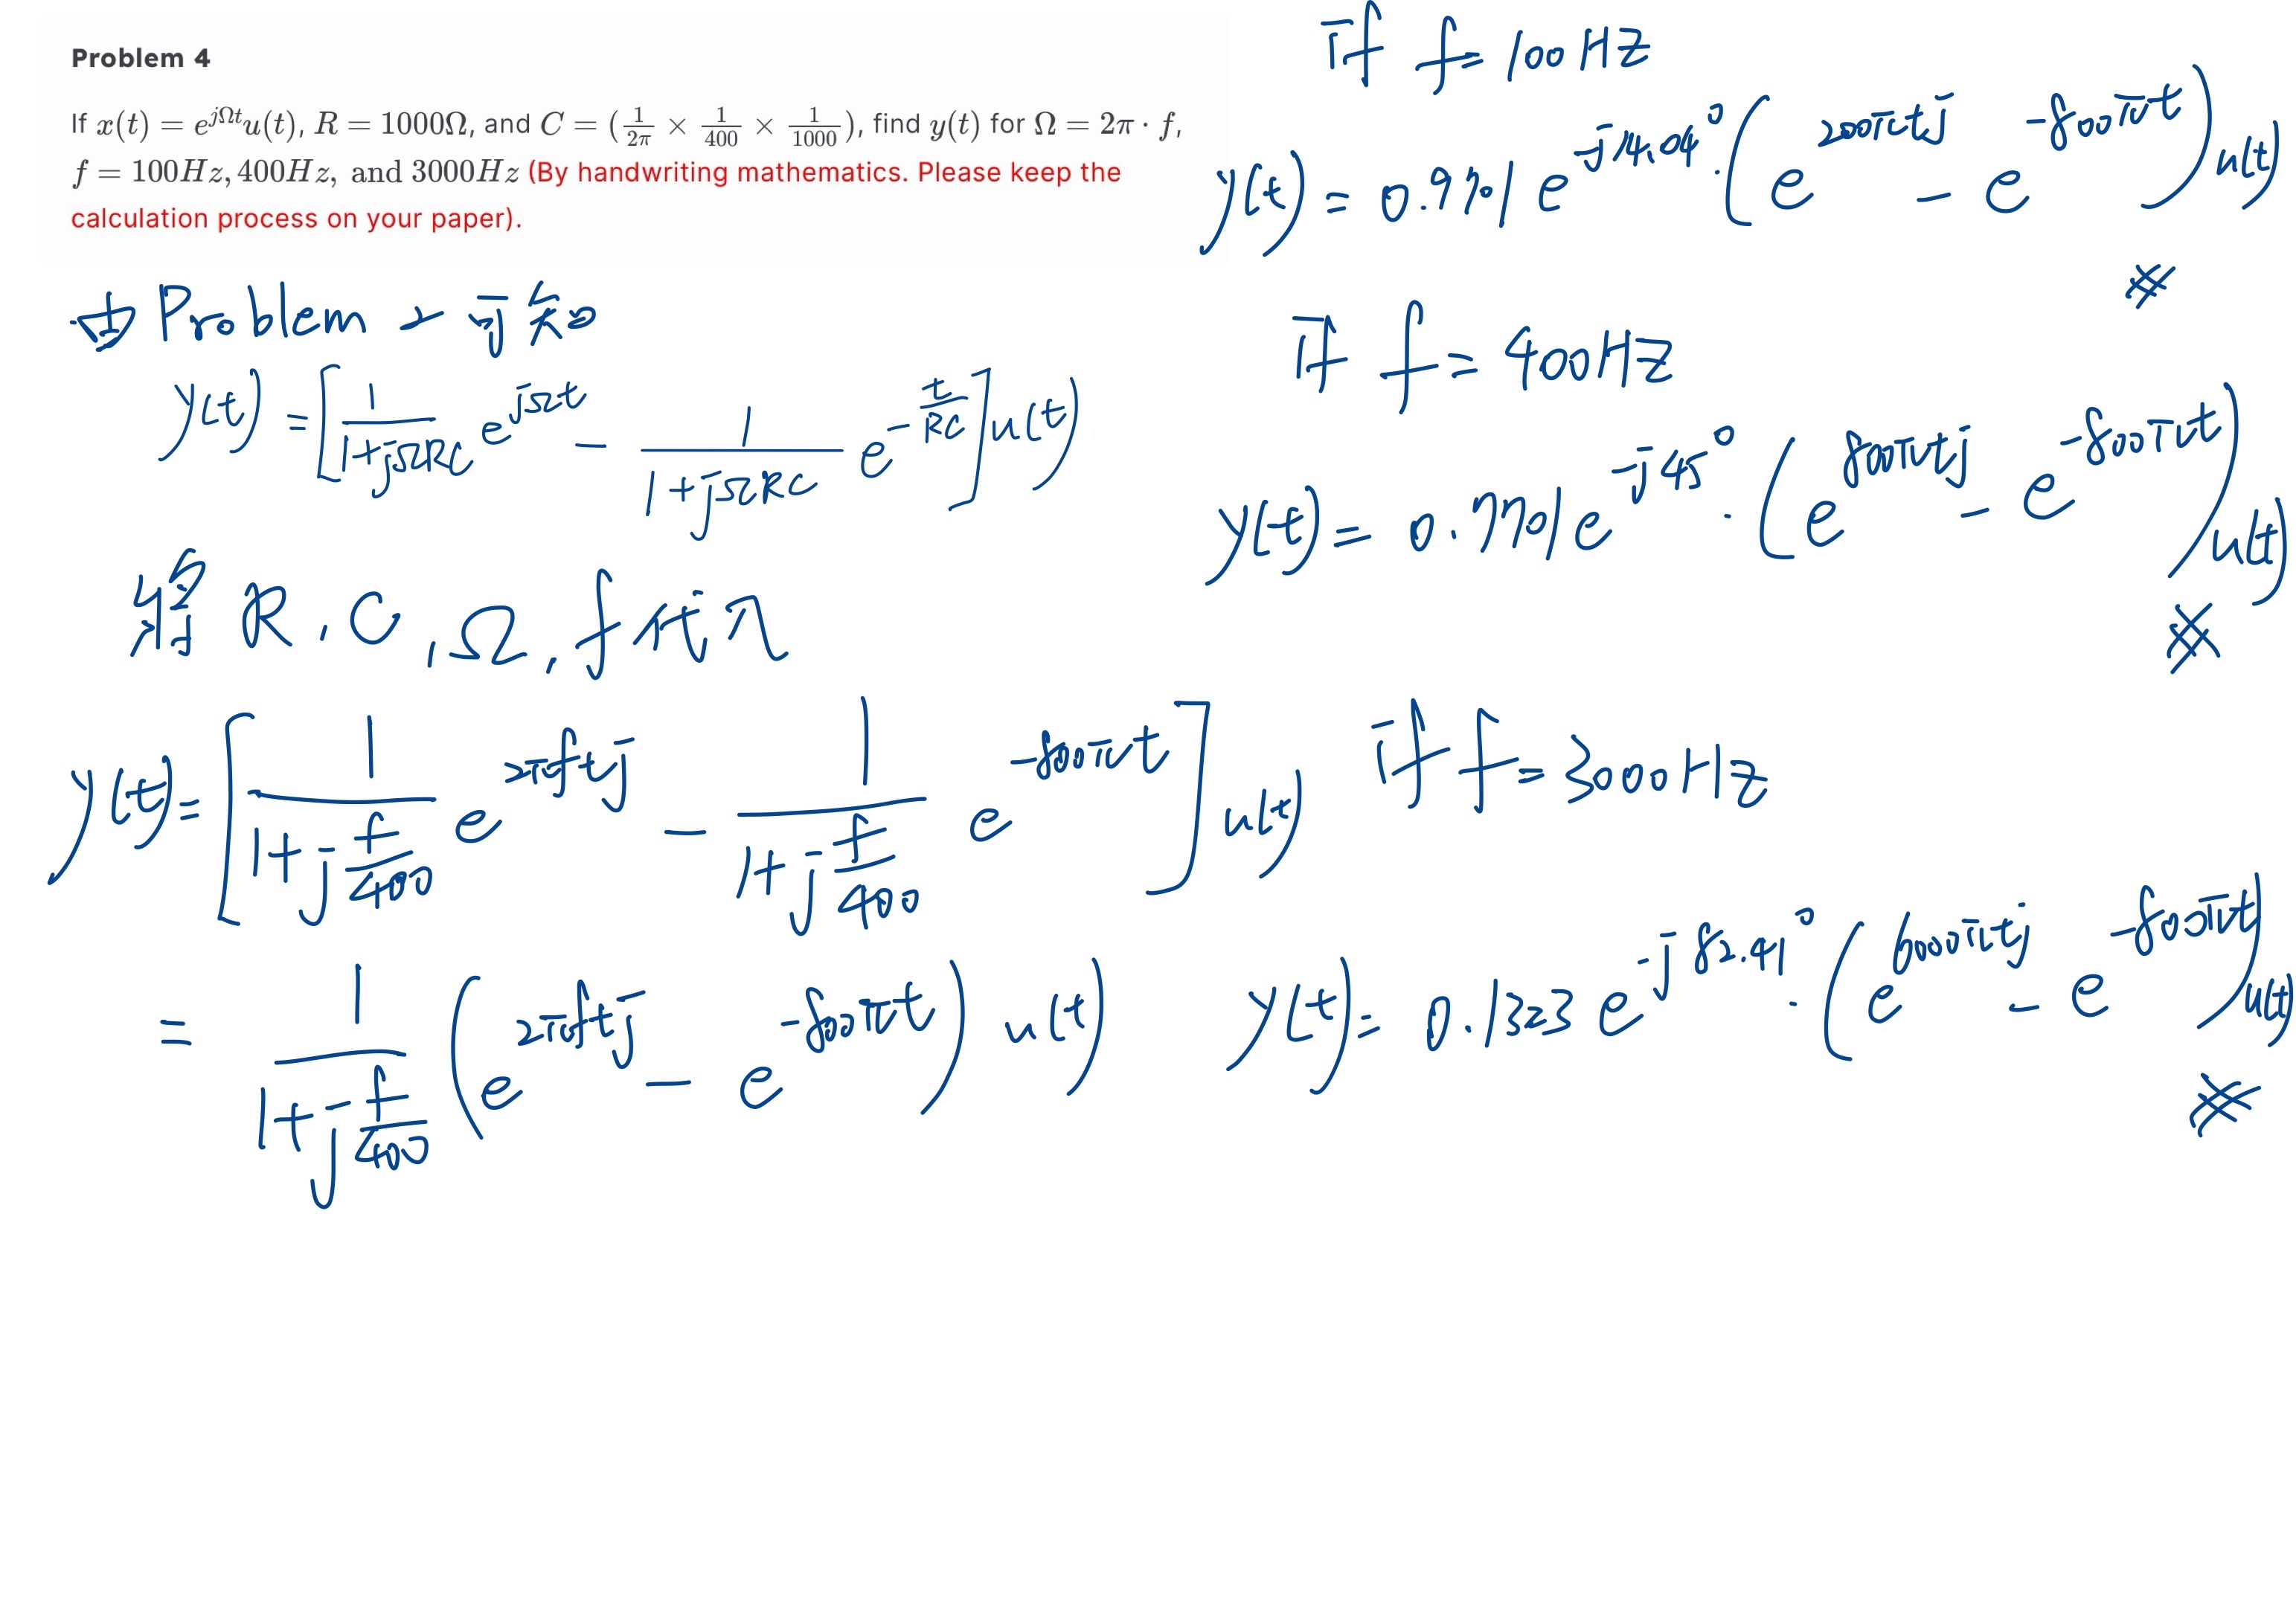 Problem 4
If x(t) = e^{jΩt}u(t), R = 1000Ω, and C = (1/2π × 1/400 × 1/1000), find y(t) for Ω = 2π · f,
f = 100Hz, 400Hz, and 3000Hz (By handwriting mathematics. Please keep the
calculation process on your paper).
由 Problem 一 可知
y(t) = [1/(1+jΩRC) e^{jΩt} - 1/(1+jΩRC) e^{-t/RC}] u(t)
將 R, C, Ω, f 代入
y(t) = [1/(1+j f/400) e^{2πftj} - 1/(1+j f/400) e^{-800πt}] u(t)
= 1/(1+j f/400) (e^{2πftj} - e^{-800πt}) u(t)
if f = 100Hz
y(t) = 0.9701 e^{-j14.04°} · (e^{200πtj} - e^{-800πt}) u(t)
※
if f = 400Hz
y(t) = 0.7701 e^{-j45°} · (e^{800πtj} - e^{-800πt}) u(t)
※
if f = 3000Hz
y(t) = 0.1323 e^{-j82.41°} · (e^{6000πtj} - e^{-800πt}) u(t)
※